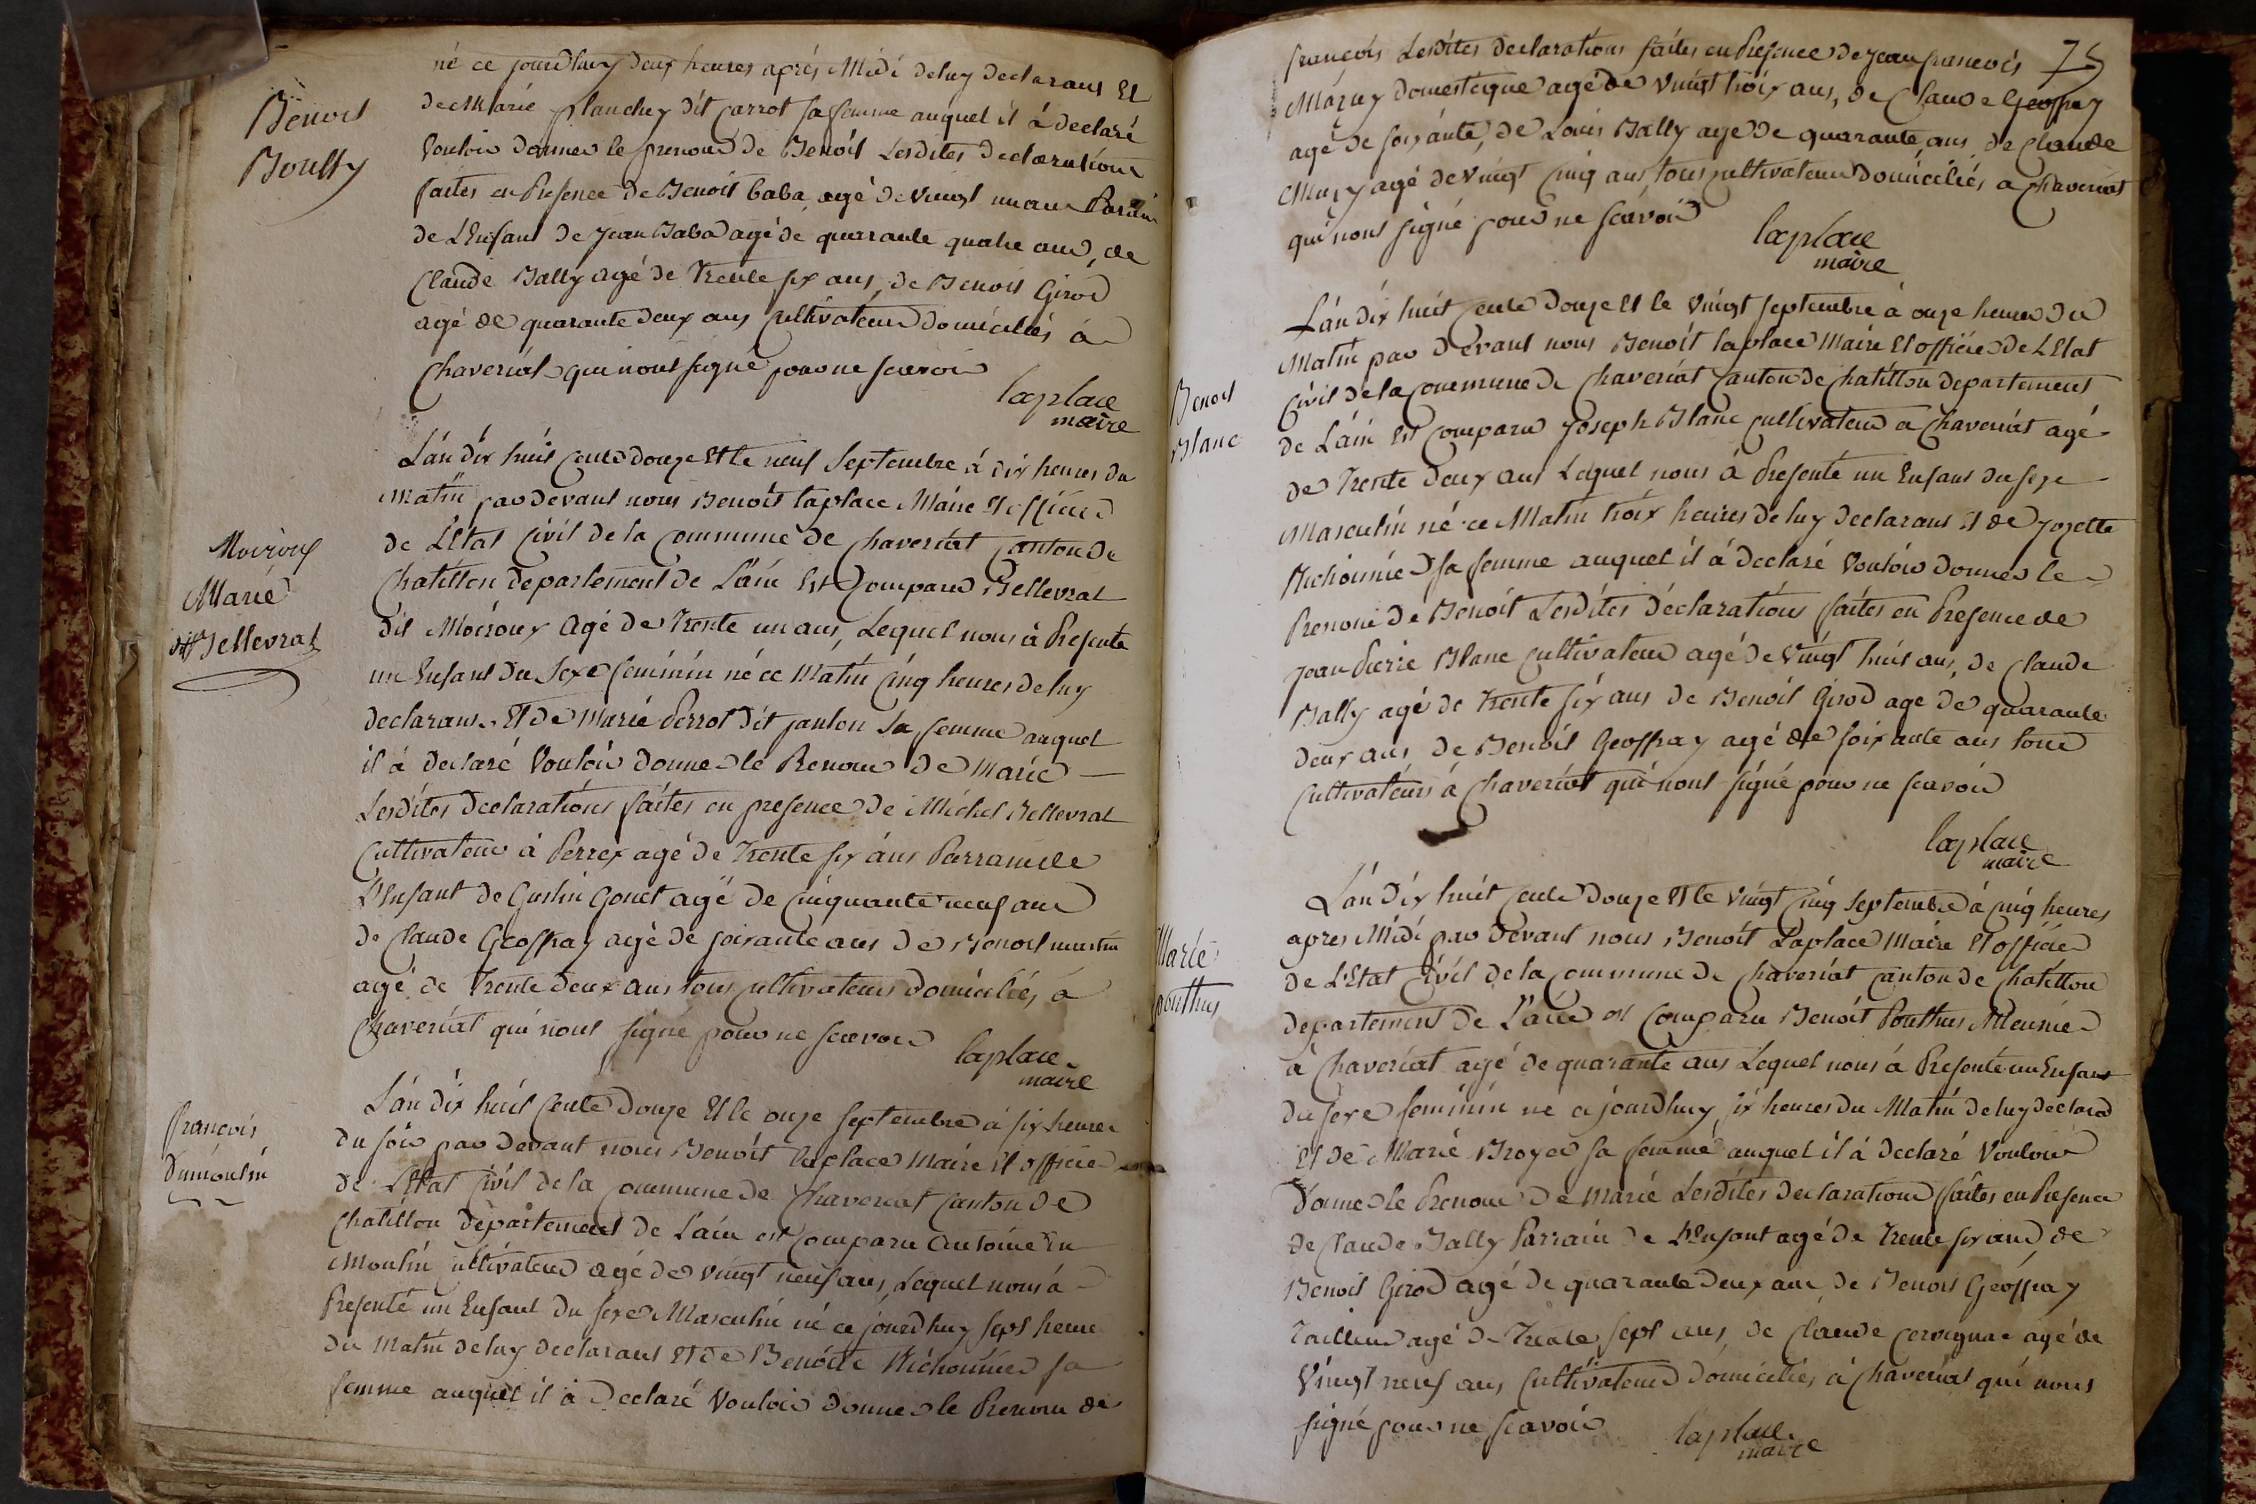 né ce jourdhuy deux heures aprés Midi deluy declarant Et
Benoit
Boully
de Marie planchy dit carrot sa femme auquel il à declaré
Vouloir donner le prenom de Benoit Lesdites declarations
faites en Presence de Benoit baba agé de Vingt un ans Parain
de L'Enfant de Jean Baba agé de quarante quatre ans, de
Claude Bally agé de trente six ans, de Benoit Girod
agé de quarante deux ans Cultivateurs domiciliés à
Chaveriat qui n'ont signé pour ne scavoir
laplace
maire
L'an dix huit Cents Douze Et le neuf Septembre à dix heures du
Matin par devant nous Benoit laplace Maire Et officier
Moiroux
Marie
ditte Bellevrat
de L'Etat Civil de la Commune de Chaveriat Canton de
Chatillon departement de L'ain Est Comparu Bellevrat
dit Moiroux Agé de Trente un ans, Lequel nous à Presenté
un Enfant du Sexe feminin né ce Matin Cinq heures deluy
declarant Et de Marie Perrot dit janton sa femme auquel
il à declaré Vouloir donner le Prenom de Marie
Lesdites declarations faites en presence de Michel Bellevrat
Cultivateur à Perrex agé de Trente six ans Parrain de
L'Enfant de Guslin Gonet agé de Cinquante neuf ans
de Claude Geoffray agé de soixante ans de Benoit martin
agé de Trente deux ans tous Cultivateurs domiciliés à
Chaveriat qui n'ont signé pour ne scavoir
laplace
maire
françois
Dumoulin
L'an dix huit Cents Douze Et le onze septembre à six heures
du soir par devant nous Benoit laplace Maire Et officier
de L'Etat Civil de la Commune de Chaveriat Canton de
Chatillon departement de L'ain est Comparu Antoine Du
Moulin Cultivateur agé de vingt neuf ans, Lequel nous à
Presenté un Enfant du sexe Masculin né ce jourdhuy sept heures
du Matin deluy declarant Et de Benoite Michonnier sa
femme auquel il à Declaré Vouloir donner le Prenom de
75
françois Lesdites declarations faites en Presence de Jean francois
Mazuy domestique agé de Vingt troix ans, de Claude Geoffray
agé de soixante, de Louis Bally agé de quarante ans de Claude
Muzy agé de Vingt Cinq ans tous Cultivateurs domiciliés a Chaveriat
qui n'ont signé pour ne scavoir
laplace
maire
L'an dix huit Cents Douze Et le Vingt septembre à onze heures du
Matin par devant nous Benoit laplace Maire Et officier de L'Etat
Benoit
Blanc
Civil de la Commune de Chaveriat Canton de Chatillon departement
de L'ain Est Comparu Joseph Blanc Cultivateur a Chaveriat agé
de Trente deux ans Lequel nous à Presenté un Enfant du sexe
Masculin né ce Matin troix heures deluy declarant Et de Jozette
Michonnier sa femme auquel il à declaré Vouloir donner le
Prenom de Benoit Lesdites declarations faites en Presence de
Jean Pierre Blanc Cultivateur agé de Vingt huit ans, de Claude
Bally agé de Trente six ans de Benoit Girod agé de quarante
deux ans, de Benoit Geoffray agé de soixante ans tous
Cultivateurs à Chaveriat qui n'ont signé pour ne scavoir
laplace
maire
L'an dix huit Cents Douze Et le Vingt Cinq Septembre à Cinq heures
apres Midi par devant nous Benoit Laplace Maire Et officier
Marie
ponthus
de L'Etat Civil de la Commune de Chaveriat Canton de Chatillon
departement de L'ain est Comparu Benoit Ponthus Meunier
à Chaveriat agé de quarante ans Lequel nous à Presenté un Enfant
du sexe feminin né ce jourdhuy six heures du Matin deluy declarant
Et de Marie Broyer sa femme auquel il à Declaré Vouloir
donner le Prenom de Marie Lesdites declarations faites en Presence
de Claude Bally Parrain de L'Enfant agé de Trente six ans, de
Benoit Girod agé de quarante deux ans, de Benoit Géoffray
Tailleur agé de Trente sept ans, de Claude Corsignac agé de
Vingt neuf ans Cultivateurs domiciliés à Chaveriat qui n'ont
signé pour ne scavoir
laplace
maire